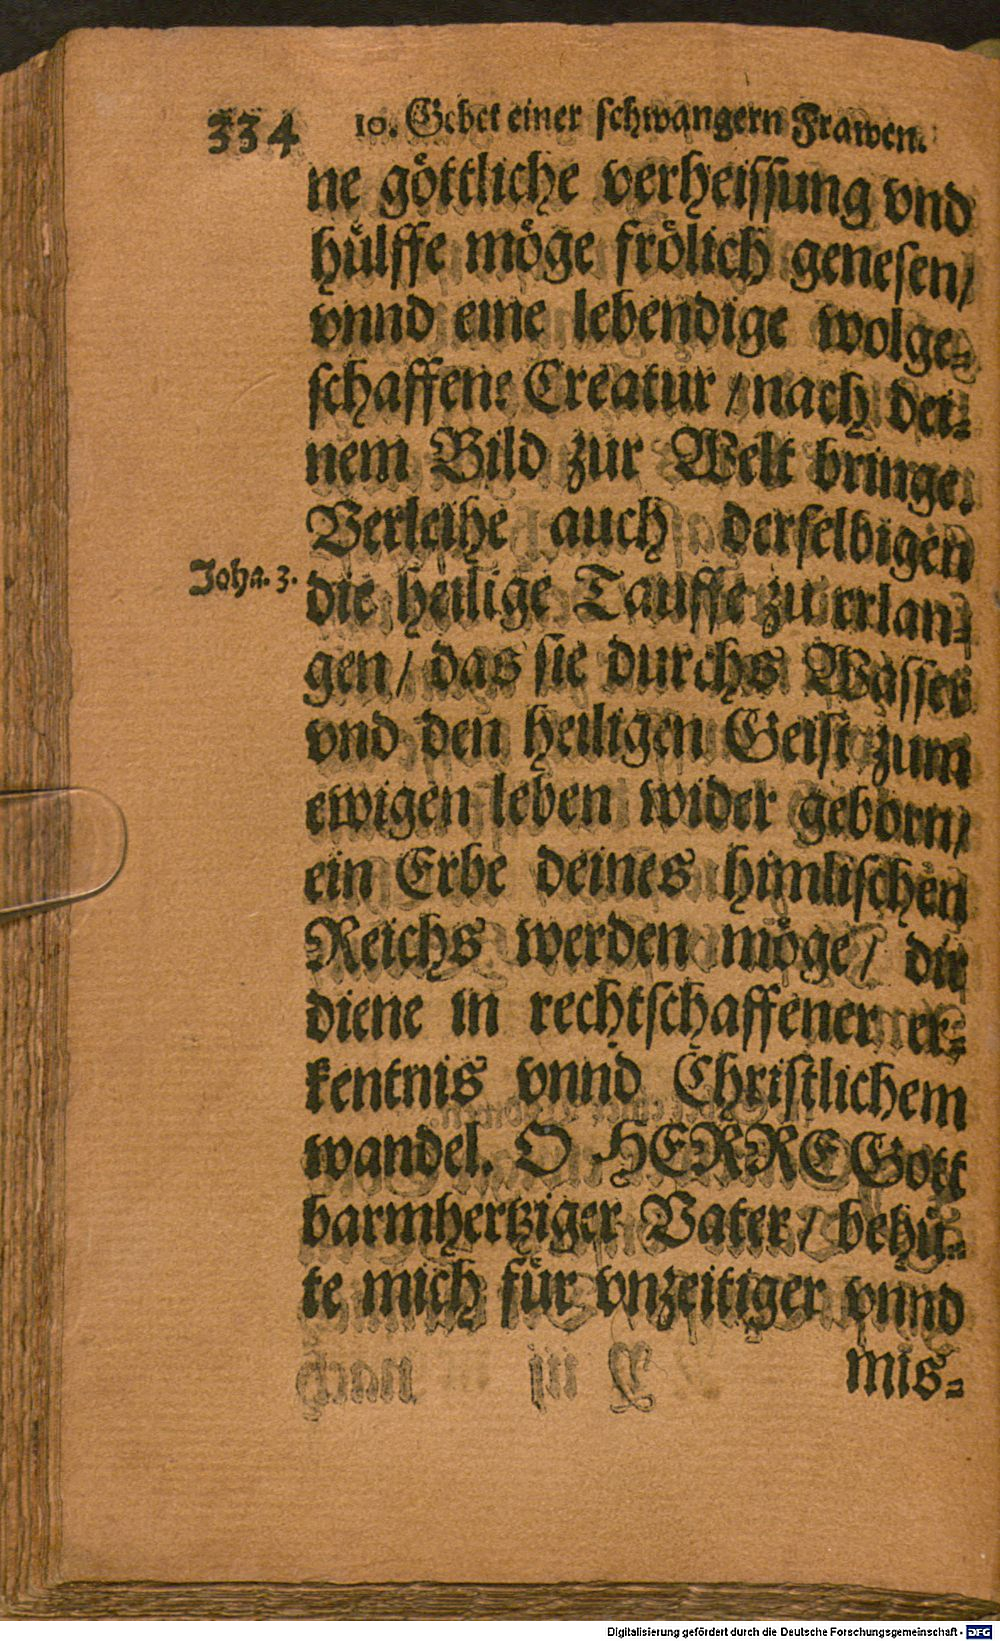 334 10. Gebet einer schwangern Frawen.
ne göttliche verheissung vnd
hülffe möge frölich genesen/
vnnd eine lebendige wolge-
schaffene Creatur / nach dei-
nem Bild zur Welt bringe.
Verleihe auch derselbigen
Joha. 3. die heilige Tauffe zu erlan-
gen / das sie durchs Wasser
vnd den heiligen Geist zum
ewigen leben wider geborn/
ein Erbe deines himlischen
Reichs werden möge / dir
diene in rechtschaffener er-
kentnis vnnd Christlichem
wandel. O HERRE Gott
barmhertziger Vater / behü-
te mich für vnzeitiger vnnd
mis-
Digitalisierung gefördert durch die Deutsche Forschungsgemeinschaft - DFG